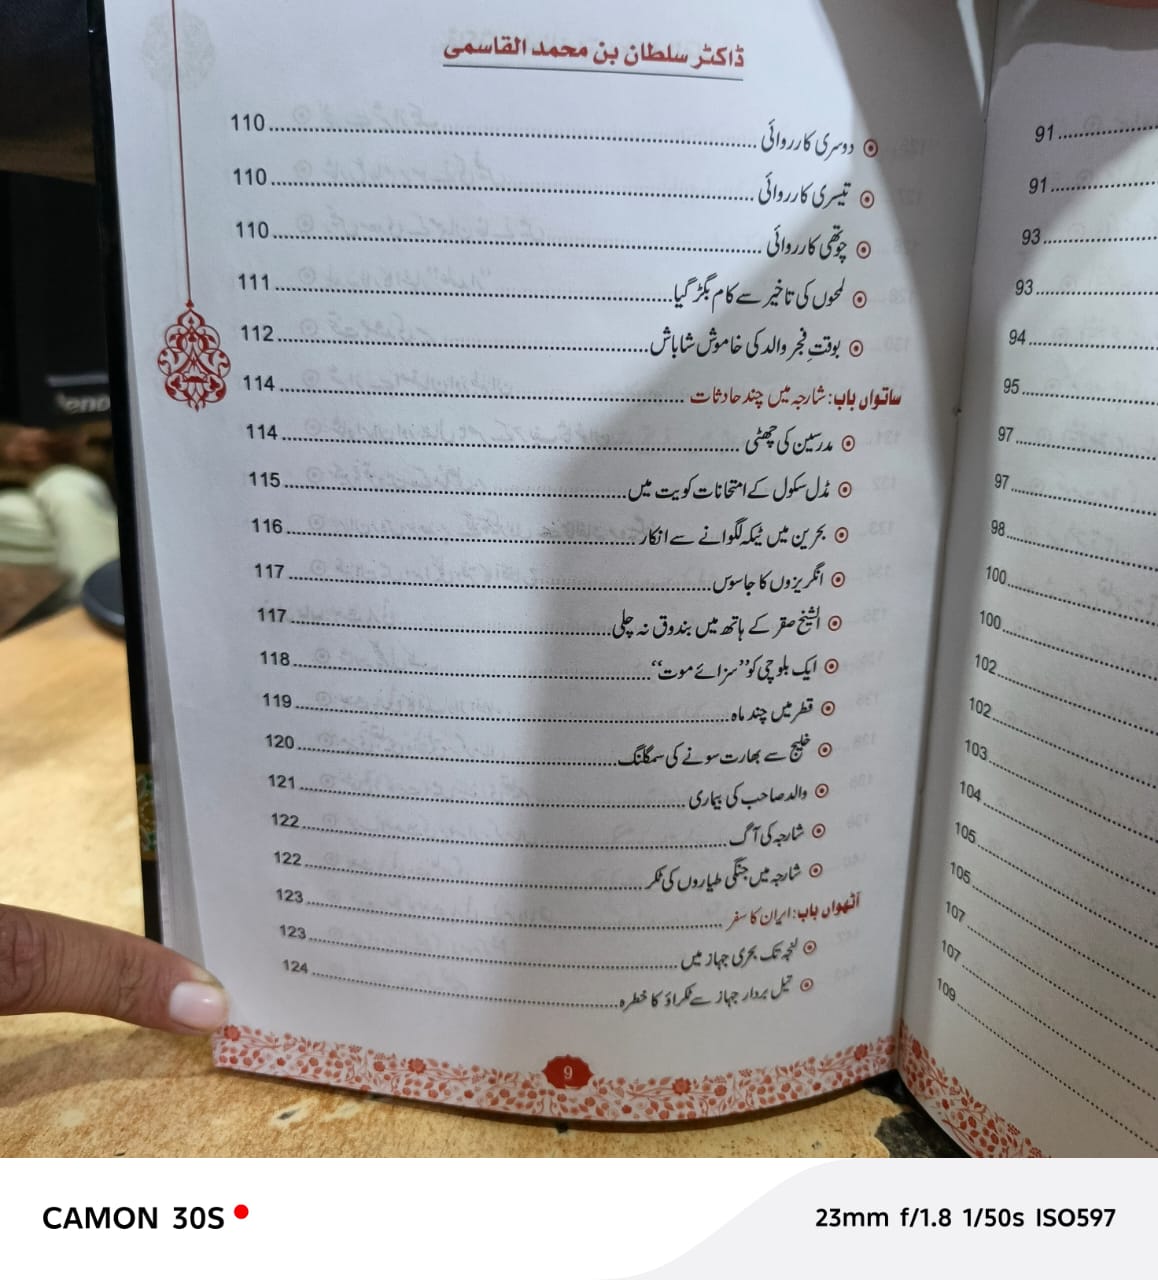 ڈاکٹر سلطان بن محمد القاسمی
دوسری کارروائی 110
تیسری کارروائی 110
چوتھی کارروائی 110
لمحوں کی تاخیر سے کام بگڑ گیا 111
بوقتِ فجر والد کی خاموش شاباش 112
ساتواں باب: شارجہ میں چند حادثات 114
مدرسین کی چھٹی 114
مڈل سکول کے امتحانات کویت میں 115
بحرین میں ٹیکہ لگوانے سے انکار 116
انگریزوں کا جاسوس 117
الشیخ صقر کے ہاتھ میں بندوق نہ چلی 117
ایک بلوچی کو ”سزائے موت“ 118
قطر میں چند ماہ 119
خلیج سے بھارت سونے کی سمگلنگ 120
والد صاحب کی بیماری 121
شارجہ کی آگ 122
شارجہ میں جنگی طیاروں کی ٹکر 122
آٹھواں باب: ایران کا سفر 123
لنجہ تک بحری جہاز میں 123
تیل بردار جہاز سے ٹکراؤ کا خطرہ 124
9
91
91
93
93
94
95
97
97
98
100
100
102
102
103
104
105
105
107
107
109
CAMON 30S
23mm f/1.8 1/50s ISO597